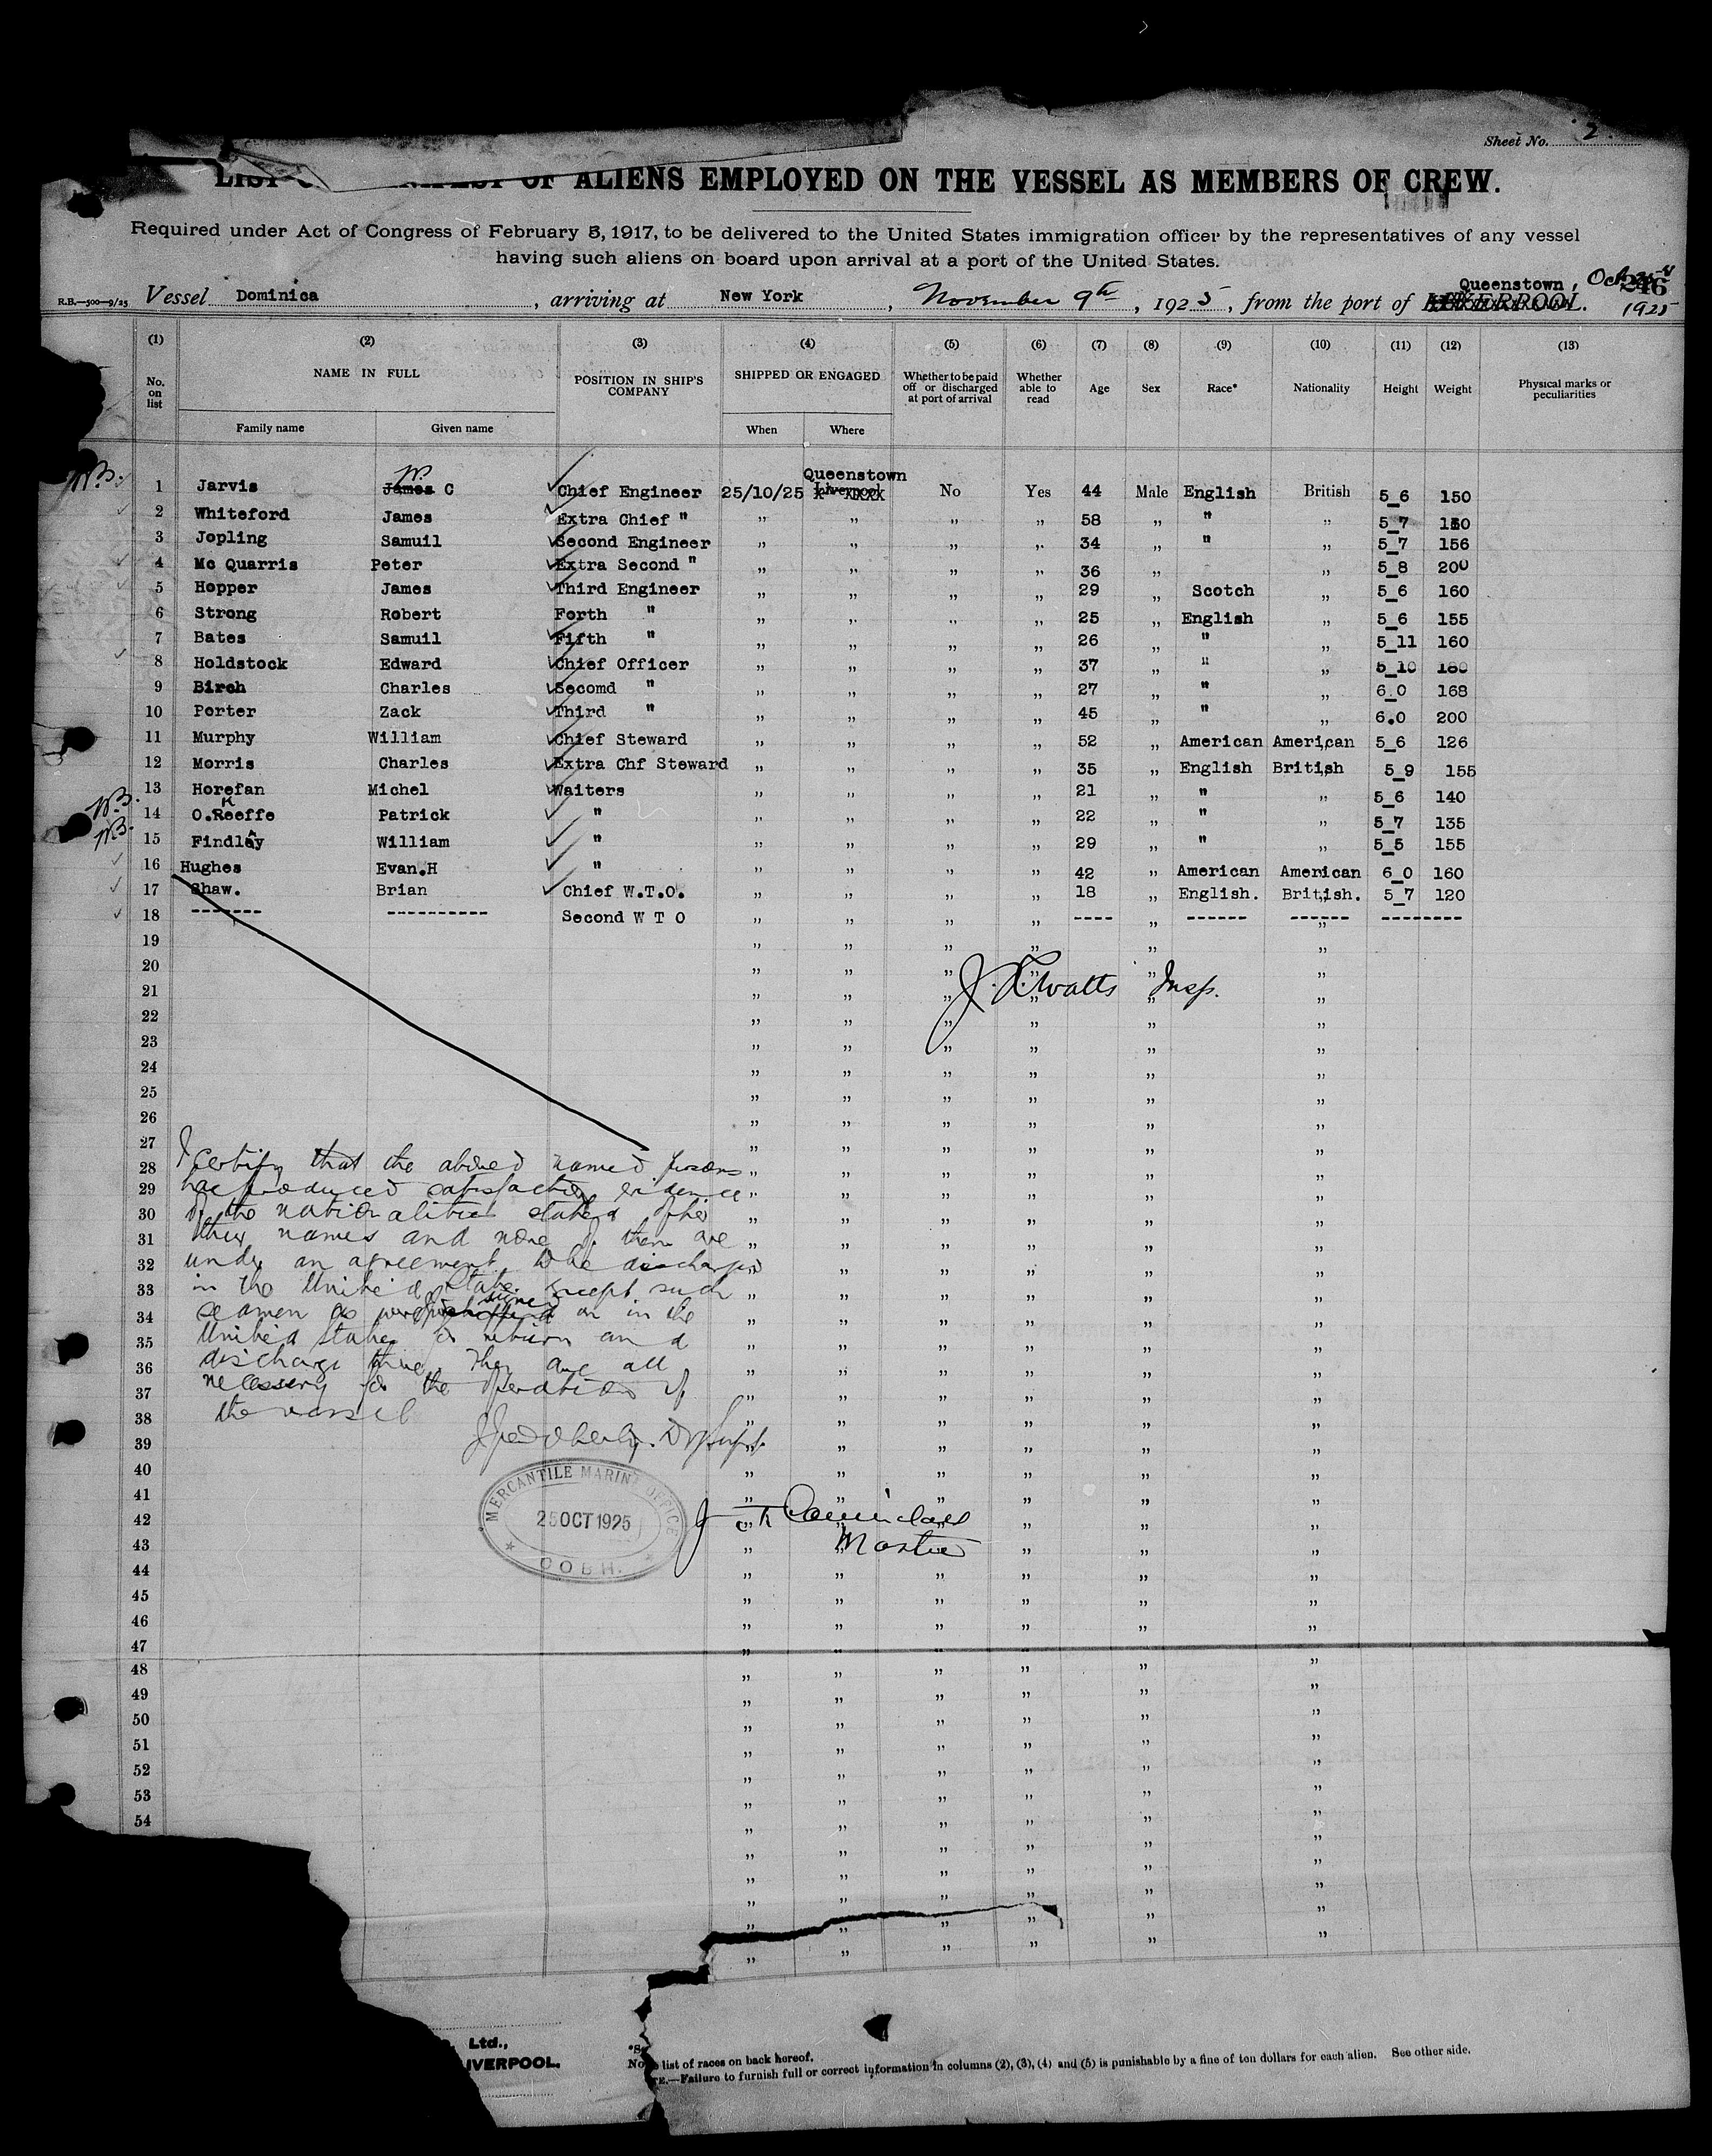 Sheet No. 2
OF ALIENS EMPLOYED ON THE VESSEL AS MEMBERS OF CREW.
Required under Act of Congress of February 5, 1917, to be delivered to the United States immigration officer by the representatives of any vessel
having such aliens on board upon arrival at a port of the United States.
R.B.—500—9/25 Vessel Dominica, arriving at New York, November 9th, 1925, from the port of LIVERPOOL. Queenstown, 1925
(1) (2) (3) (4) (5) (6) (7) (8) (9) (10) (11) (12) (13)
No. on list NAME IN FULL POSITION IN SHIP'S COMPANY SHIPPED OR ENGAGED Whether to be paid off or discharged at port of arrival Whether able to read Age Sex Race* Nationality Height Weight Physical marks or peculiarities
Family name Given name When Where
W.B. 1 Jarvis James W. C Chief Engineer 25/10/25 Liverpool Queenstown No Yes 44 Male English British 5_6 150
2 Whiteford James Extra Chief " " " " " 58 " " " 5_7
3 Jopling Samuil Second Engineer " " " " 34 " " " 5_7 156
4 Mc Quarris Peter Extra Second " " " " " 36 " " 5_8 200
5 Hopper James Third Engineer " " " " 29 " Scotch " 5_6 160
6 Strong Robert Forth " " " " " 25 " English " 5_6 155
7 Bates Samuil Fifth " " " " " 26 " " " 5_11 160
8 Holdstock Edward Chief Officer " " " " 37 " " " 5_10 180
9 Birch Charles Secomd " " " " " 27 " " " 6_0 168
10 Porter Zack Third " " " " " 45 " " " 6.0 200
11 Murphy William Chief Steward " " " " 52 " American American 5_6 126
12 Morris Charles Extra Chf Steward " " " " 35 " English British 5_9 155
13 Horefan Michel Waiters " " " " 21 " " " 5_6 140
W.B. 14 O.Keeffe Patrick " " " " " 22 " " " 5_7 135
W.B. 15 Findlay William " " " " " 29 " " " 5_5 155
16 Hughes Evan.H " " " " " 42 " American American 6_0 160
17 Shaw. Brian Chief W.T.O. " " " " 18 " English. British. 5_7 120
18 ------- ---------- Second W T O " " " " ---- " ------ ------ --------
19
20
21 J. Watts Insp.
22
23
24
25
26
27
28 I certify that the above named persons
29 have produced satisfactory evidence
30 of the nationalities stated after
31 their names and none of them are
32 under an agreement to be discharged
33 in the United States except such
34 seamen as were shipped signed on in the
35 United States to return and
36 discharge there. They are all
37 necessary for the operation of
38 the vessel
39 Supt.
40
41
42
43 Master
44
45
46
47
48
49
50
51
52
53
54
MERCANTILE MARINE OFFICE
25 OCT 1925
COBH.
Ltd.,
LIVERPOOL.
list of races on back hereof.
—Failure to furnish full or correct information in columns (2), (3), (4) and (5) is punishable by a fine of ten dollars for each alien. See other side.